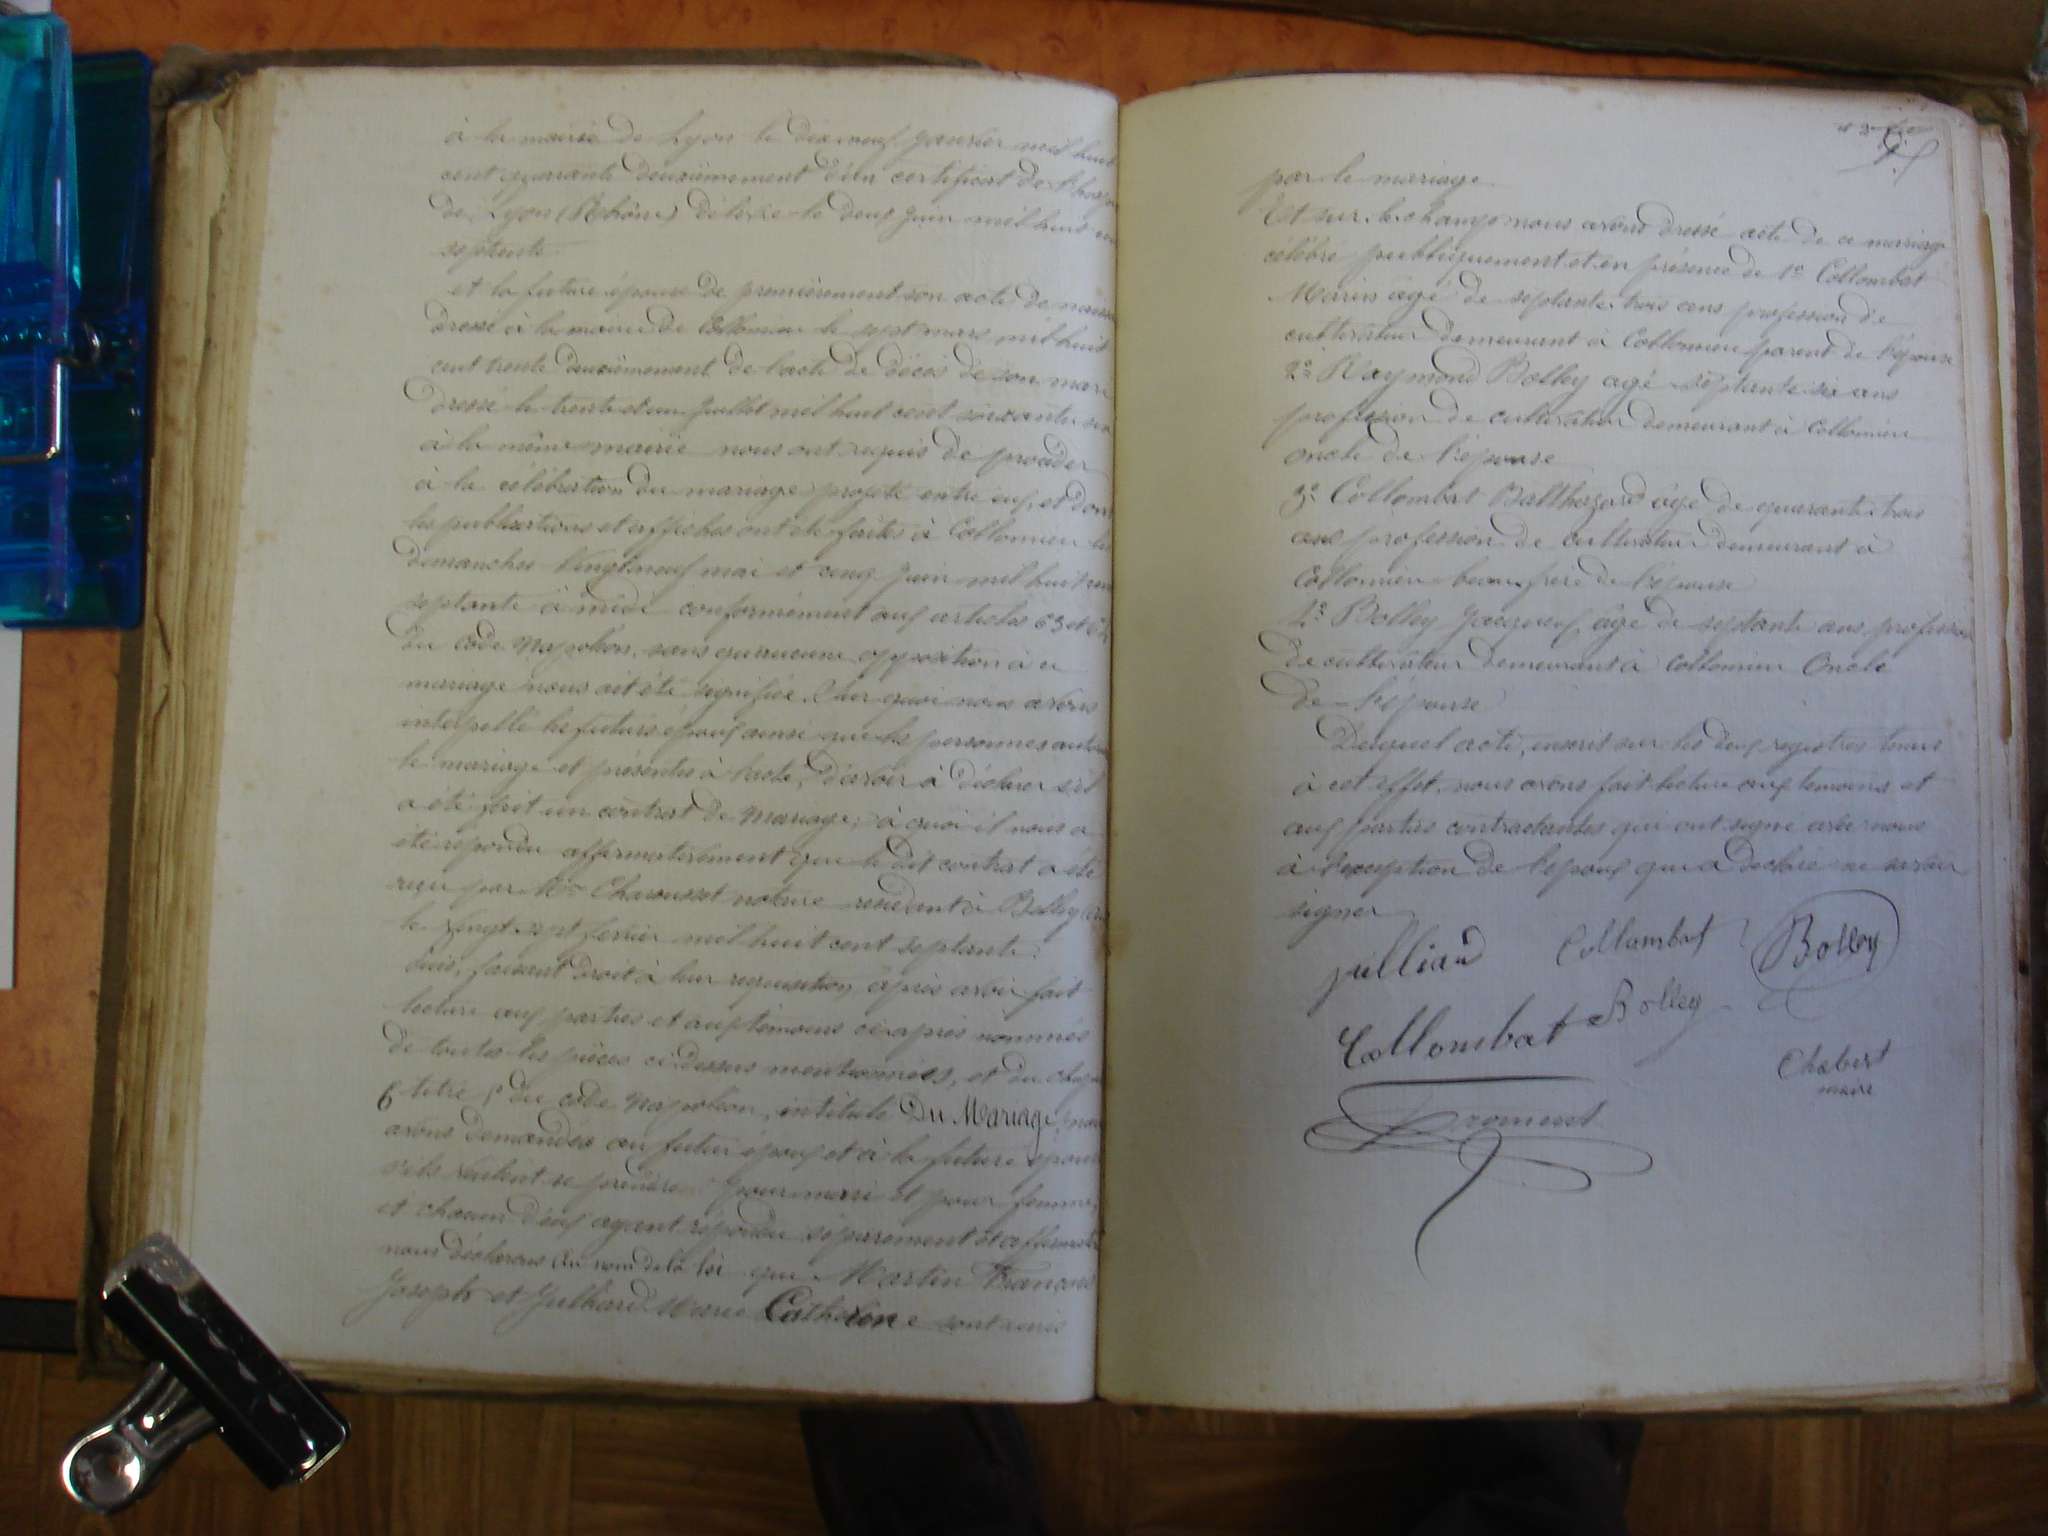 à la mairie de Lyon le dix neuf janvier mil huit
cent quarante deuxièmement d'un certificat de
de Lyon (Rhône) délivré le deux juin mil huit
septante
et la future épouse de premièrement son acte de
dressé à la mairie de Collonieu le sept mars mil huit
cent trente deuxièmement de l'acte de décès de son mari
dressé le trente et un juillet mil huit cent soixante six
à la même mairie nous ont requis de procéder
à la célébration du mariage projeté entre eux, et dont
les publications et affiches ont été faites à Collonieu les
dimanches vingt neuf mai et cinq juin mil huit cent
septante à midi conformément aux articles 63 et 64
du code Napoléon, sans qu'aucune opposition à ce
mariage nous ait été signifiée. Sur quoi nous avons
interpellé les futurs époux ainsi que les personnes
le mariage et présentes à l'acte, d'avoir à déclarer s'il
a été fait un contrat de mariage; à quoi il nous a
été répondu affirmativement que le dit contrat a été
reçu par Me Charousset notaire résidant à Belley
le vingt sept fevrier mil huit cent septante;
Puis, faisant droit à leur requisition, après avoir fait
lecture aux parties et aux témoins ci après nommés
de toutes les pièces ci dessus mentionnées, et du
6 titre 5 du code Napoléon, intitulé Du Mariage, nous
avons demandés au futur époux et à la future épouse
s'ils veulent se prendre pour mari et pour femme,
et chacun d'eux ayant répondu séparement et
nous déclarons au nom de la loi que Martin François
Joseph et Julliard Marie Catherine sont unis
par le mariage
Et sur le champ nous avons dressé acte de ce mariage
célébré publiquement et en présence de 1o Collombat
Marius agé de septante trois ans profession de
cultivateur demeurant à Collonieu parent de l'épouse
2o Raymond Bolley agé septante six ans
profession de cultivateur demeurant à Collonieu
oncle de l'épouse
3o Collombat Balthazard âgé de quarante trois
ans profession de cultivateur demeurant à
Collonieu beau frere de l'épouse
4o Bolley Jacques âgé de septante ans profession
de cultivateur demeurant à Collonieu Oncle
de l'épouse
Duquel acte, inscrit sur les deux registres tenus
à cet effet, nous avons fait lecture aux temoins et
aux parties contractantes qui ont signé avec nous
à l'exception de l'epoux qui a declaré ne savoir
signer
julliard Collombat Bolley
Collombat Bolley
Chabert
maire